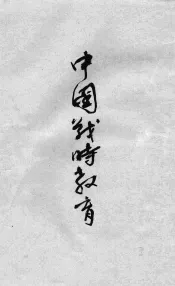 中國戰時教育